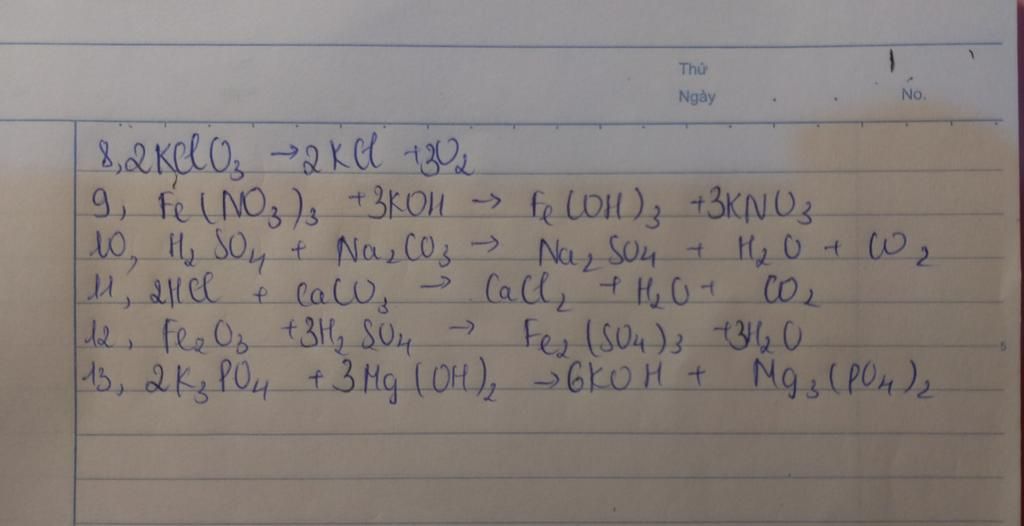 Thứ
Ngày
No.
8, 2KClO3 → 2KCl + 3O2
9, Fe(NO3)3 + 3KOH → Fe(OH)3 + 3KNO3
10, H2SO4 + Na2CO3 → Na2SO4 + H2O + CO2
11, 2HCl + CaCO3 → CaCl2 + H2O + CO2
12, Fe2O3 + 3H2SO4 → Fe2(SO4)3 + 3H2O
13, 2K3PO4 + 3Mg(OH)2 → 6KOH + Mg3(PO4)2